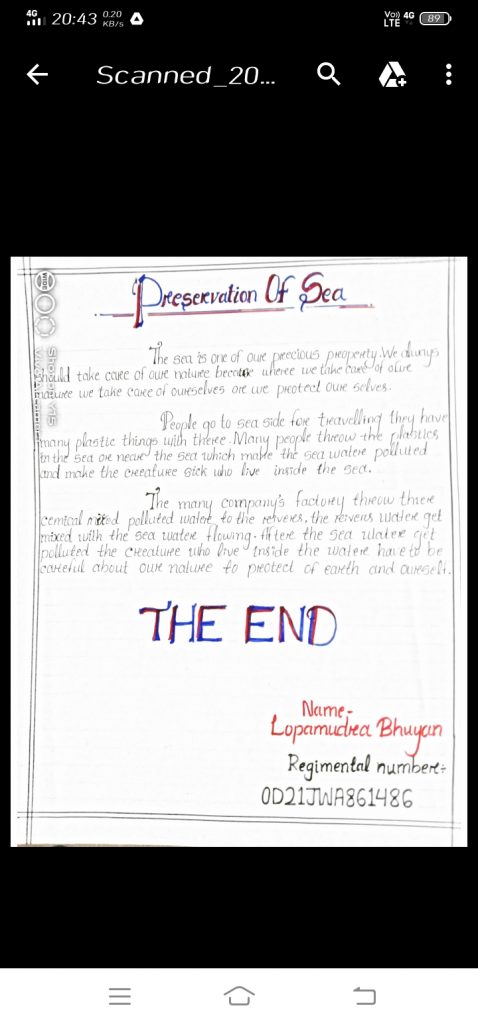 4G 20:43 0.20 KB/s Vo)) LTE 4G 89
Scanned_20...
Preservation Of Sea
The sea is one of our precious property. We always
should take care of our nature because where we take care of our
nature we take care of ourselves or we protect our selves.
People go to sea side for travelling they have
many plastic things with there. Many people throw the plastics
in the sea or near the sea which make the sea water polluted
and make the creature sick who live inside the sea.
The many company's factory throw there
cemical mixed polluted water to the rivers, the rivers water get
mixed with the sea water flowing. After the sea water get
polluted the creature who live inside the water have to be
careful about our nature to protect of earth and ourself.
THE END
Name-
Lopamudra Bhuyan
Regimental number:-
OD21JWA861486
Shot on Y15
Vivo